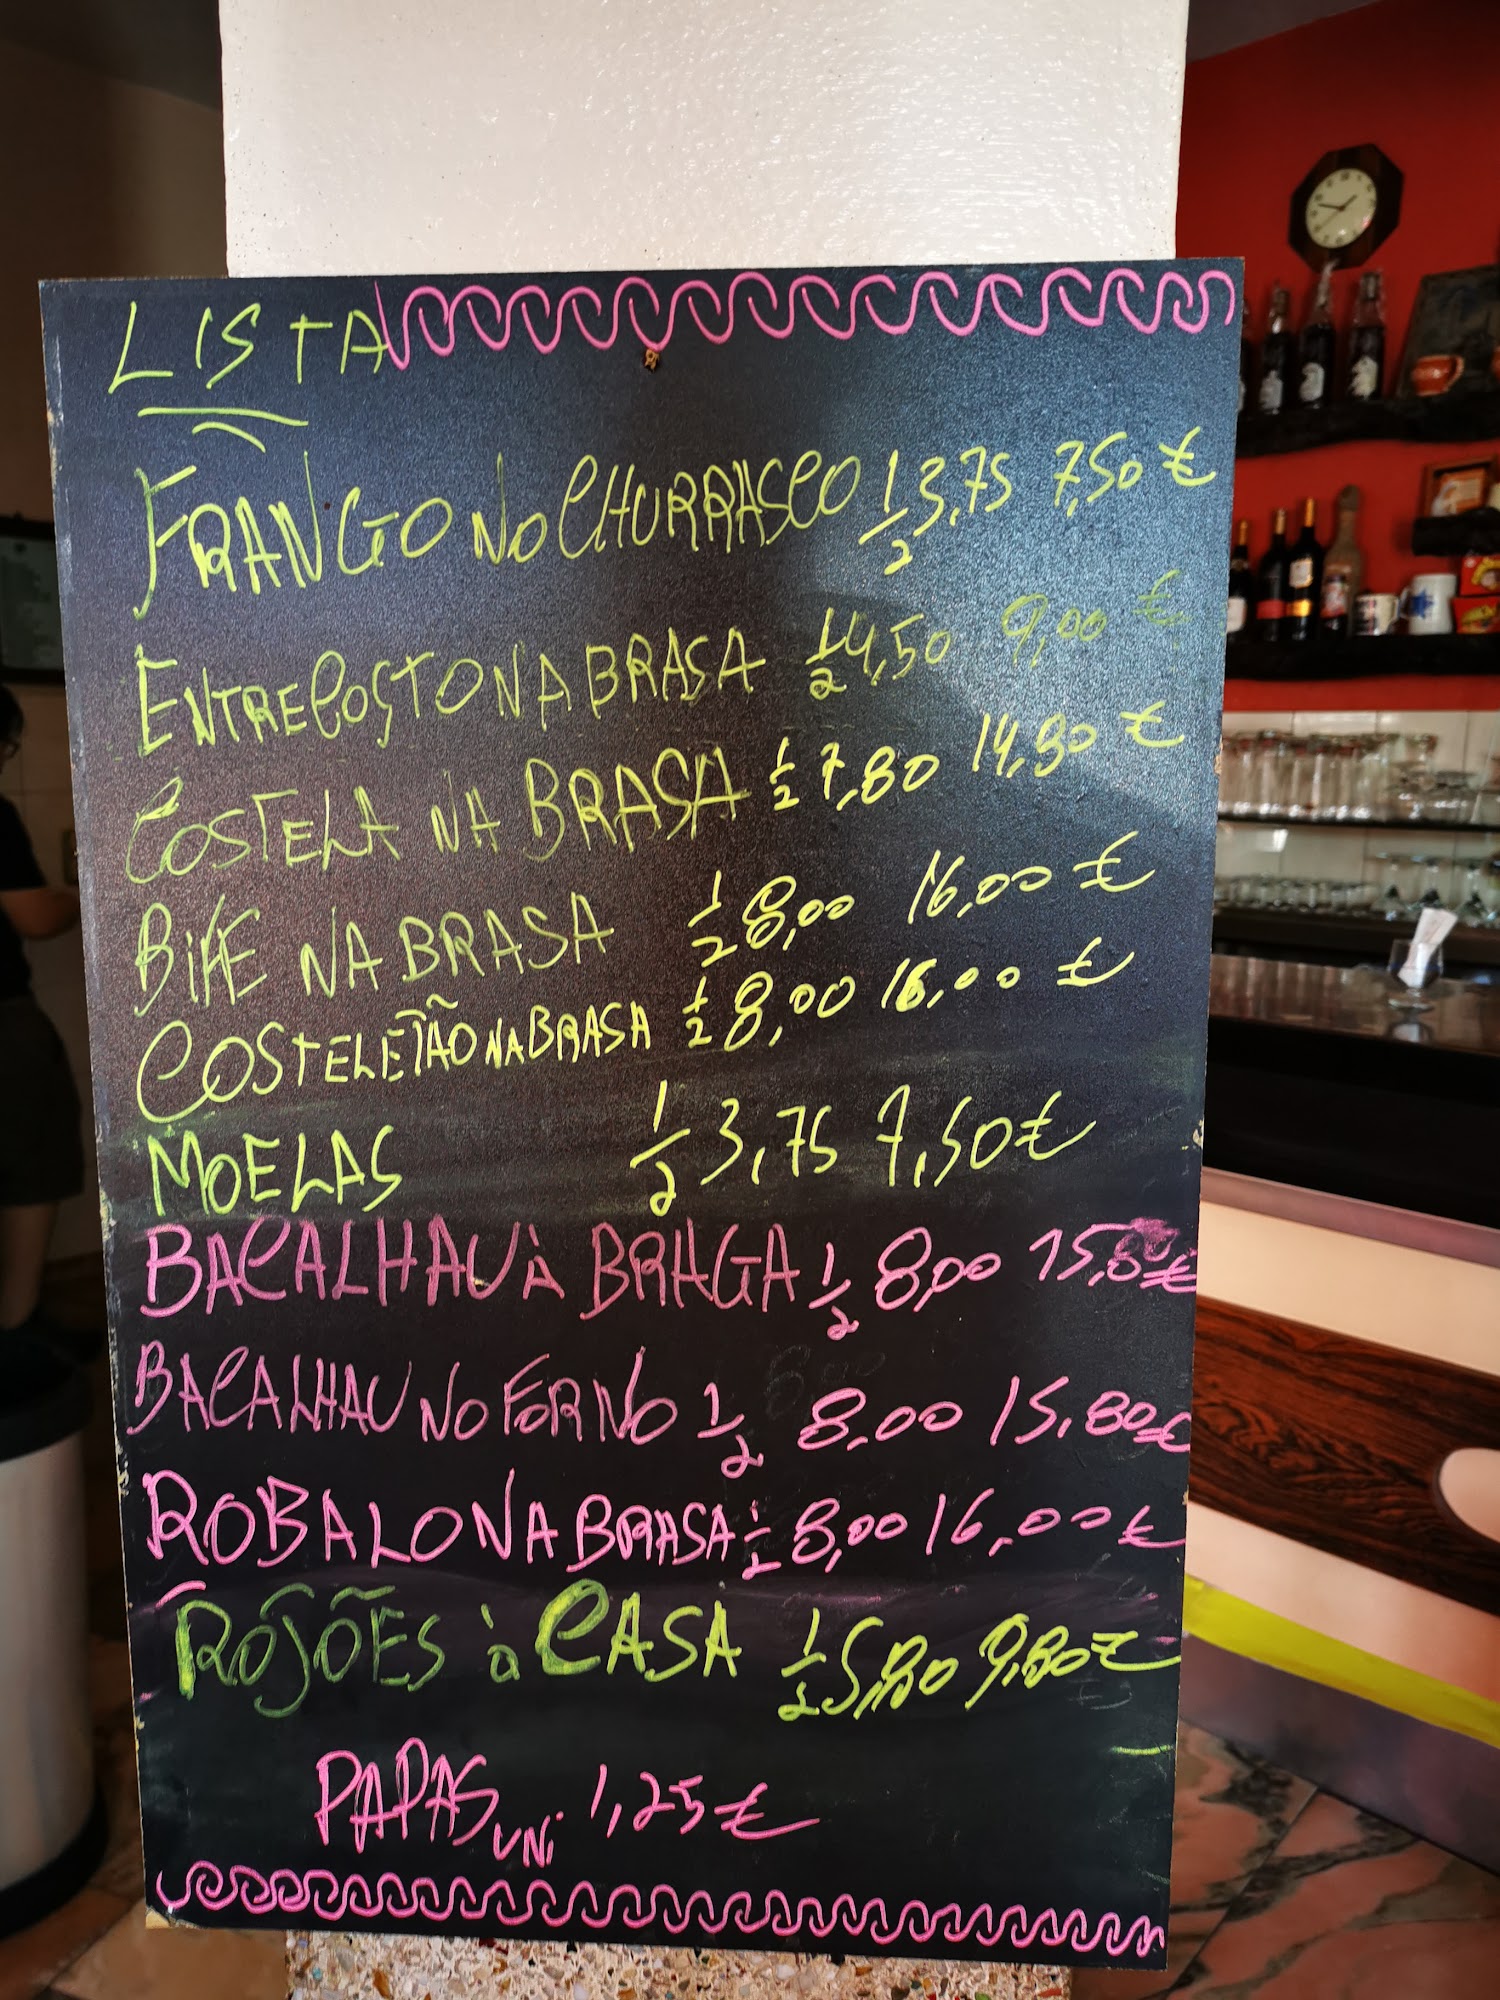 LISTA
FRANGO NO CHURRASCO 1/2 3,75 7,50 €
ENTRECOSTO NA BRASA 1/2 4,50 9,00 €
COSTELA NA BRASA 1/2 7,80 14,80 €
BIFE NA BRASA 1/2 8,00 16,00 €
COSTELETÃO NA BRASA 1/2 8,00 16,00 €
MOELAS 1/2 3,75 7,50 €
BACALHAU à BRAGA 1/2 8,00 15,80 €
BACALHAU NO FORNO 1/2 8,00 15,80 €
ROBALO NA BRASA 1/2 8,00 16,00 €
ROJÕES à CASA 1/2 5,80 9,80 €
PAPAS UNI 1,25 €